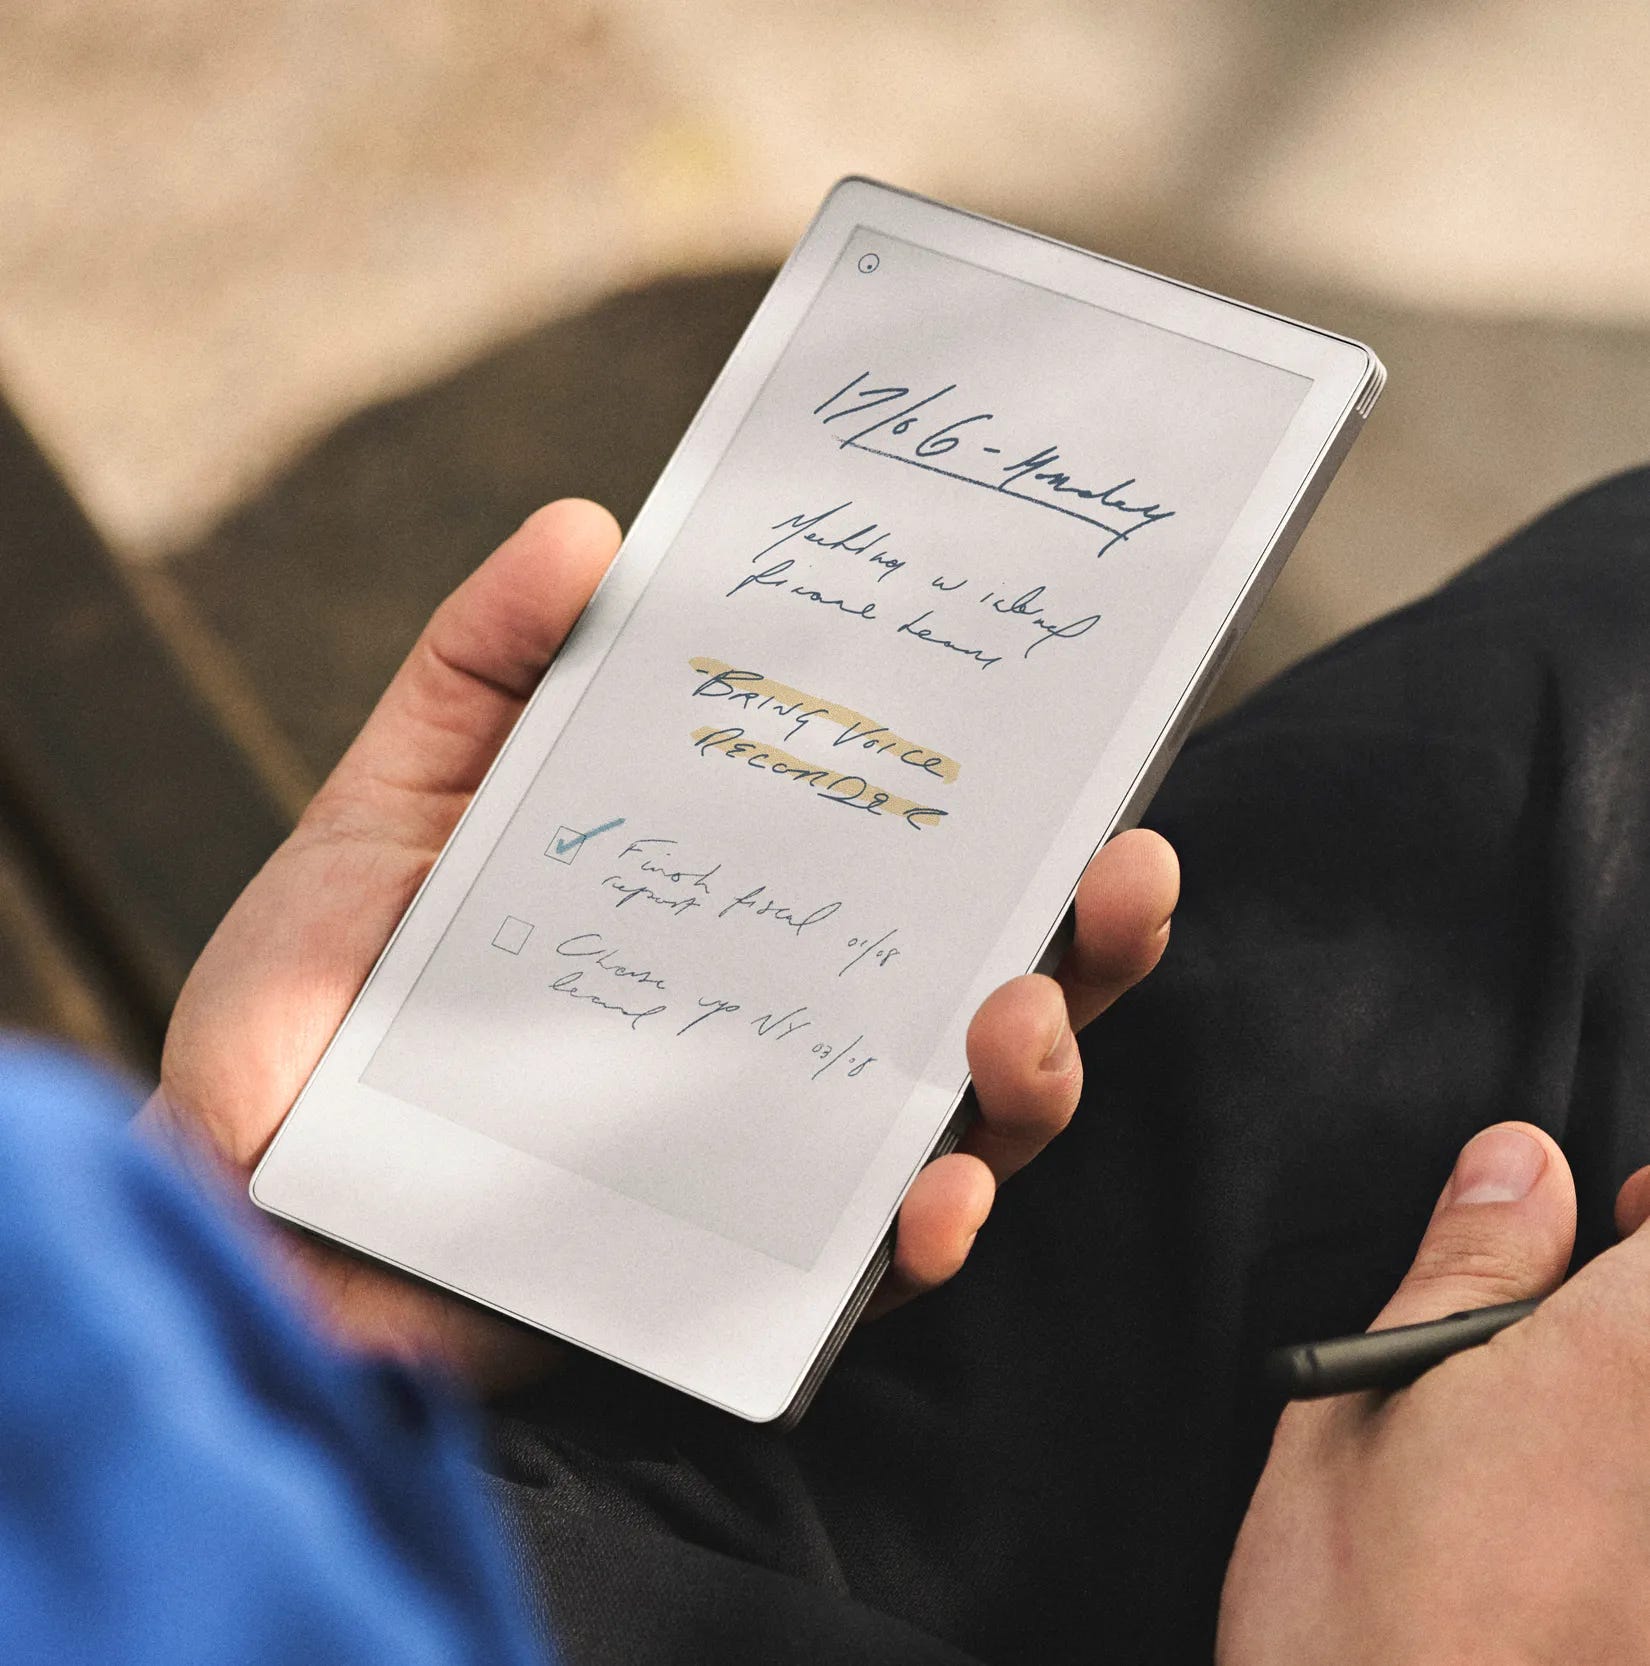 17/06 - Monday
Meeting w internal
finance team
- BRING VOICE
RECORDER
Finish fiscal 01/08
report
Chase up NY 03/08
team